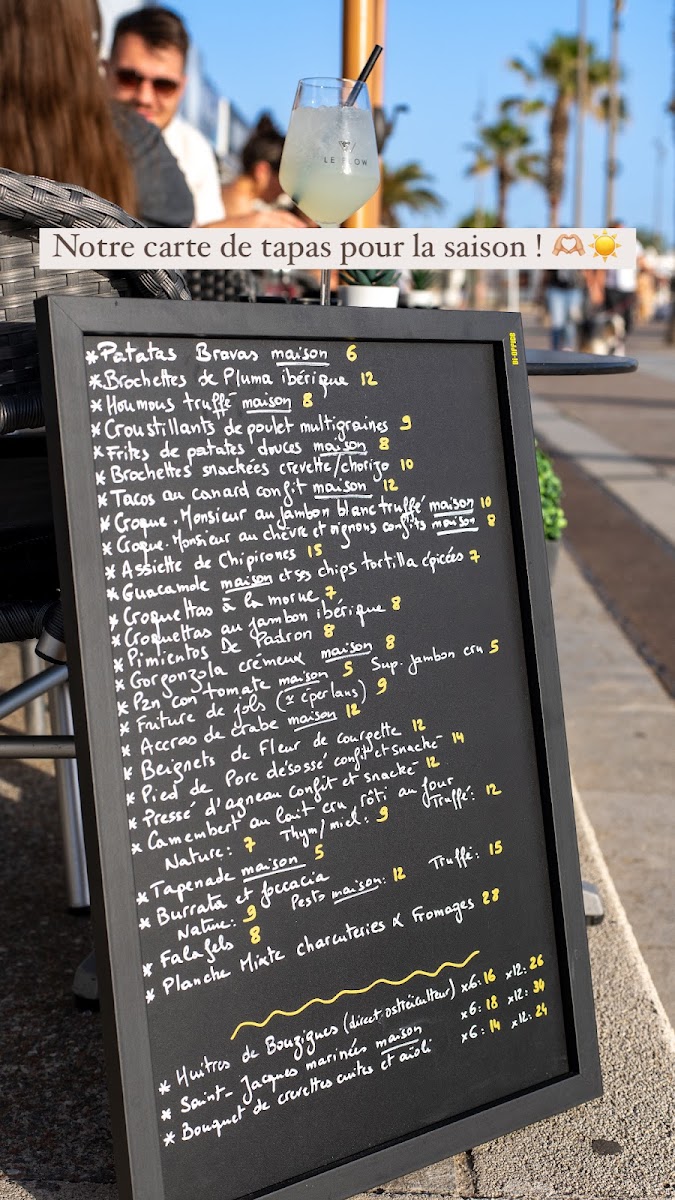 LE FLOW
Notre carte de tapas pour la saison ! 🫶🏼☀️
*Patatas Bravas maison 6
*Brochettes de Pluma ibérique 12
*Houmous truffé maison 8
*Croustillants de poulet multigraines 9
*Frites de patates douces maison 8
*Brochettes snackées crevette/chorizo 10
*Tacos au canard confit maison 12
*Croque-Monsieur au jambon blanc truffé maison 10
*Croque-Monsieur au chèvre et oignons confits maison 8
*Assiette de Chipirones 15
*Guacamole maison et ses chips tortilla épicées 7
*Croquettas à la morue 7
*Croquettas au jambon ibérique 8
*Pimientos De Padron 8
*Gorgonzola crémeux maison 8
*Pan con tomate maison 5 Sup. jambon cru 5
*Friture de jols (éperlans) 9
*Accras de crabe maison 12
*Beignets de Fleur de courgette 12
*Pied de Porc désossé confit et snacké 14
*Pressé d'agneau confit et snacké 12
*Camembert au lait cru, rôti au four
Nature: 7 Thym/miel: 9 Truffé: 12
*Tapenade maison 5
*Burrata et foccacia
Nature: 9 Pesto maison: 12 Truffé: 15
*Falafels 8
*Planche Mixte charcuteries & Fromages 28
*Huîtres de Bouzigues (direct ostréiculteur) x6: 16 x12: 26
*Saint-Jacques marinées maison x6: 18 x12: 34
*Bouquet de crevettes cuites et aïoli x6: 14 x12: 24